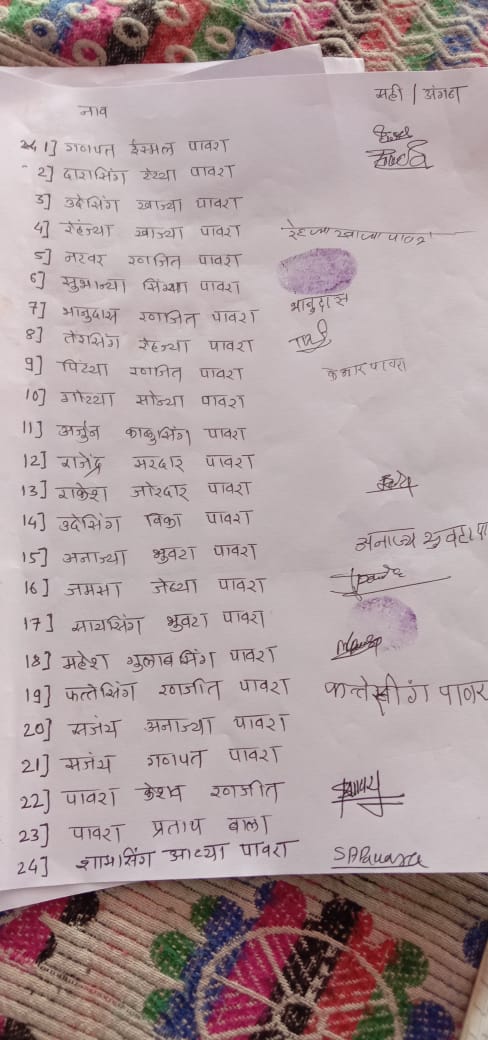 नाव सही / अंगठा
1] गणपत ईस्मल पावरा
2] दारासिंग रेहया पावरा
3] उदेसिंग खाज्या पावरा
4] रेहंज्या खाज्या पावरा रेहज्या खाज्या पावरा
5] नरवर रणजित पावरा
6] सुभान्या सिंग्या पावरा
7] भानुदास रणजित पावरा भानुदास
8] तेरासिंग रेहज्या पावरा
9] पिंट्या रणजित पावरा पावरा
10] गोट्या सोन्या पावरा
11] अर्जुन काळुसिंग पावरा
12] राजेंद्र सरदार पावरा
13] राकेश जोरदार पावरा
14] उदेसिंग विका पावरा
15] अनाज्या भुवटा पावरा अनाज्य भुवटा पा
16] जमसा जेह्या पावरा
17] सायसिंग भुवटा पावरा
18] महेश गुलाबसिंग पावरा
19] फत्तेसिंग रणजीत पावरा फत्तेसींग पावर
20] संजय अनाज्या पावरा
21] संजय गणपत पावरा
22] पावरा केशव रणजीत
23] पावरा प्रताप बाला
24] शामसिंग आट्या पावरा SAPawara